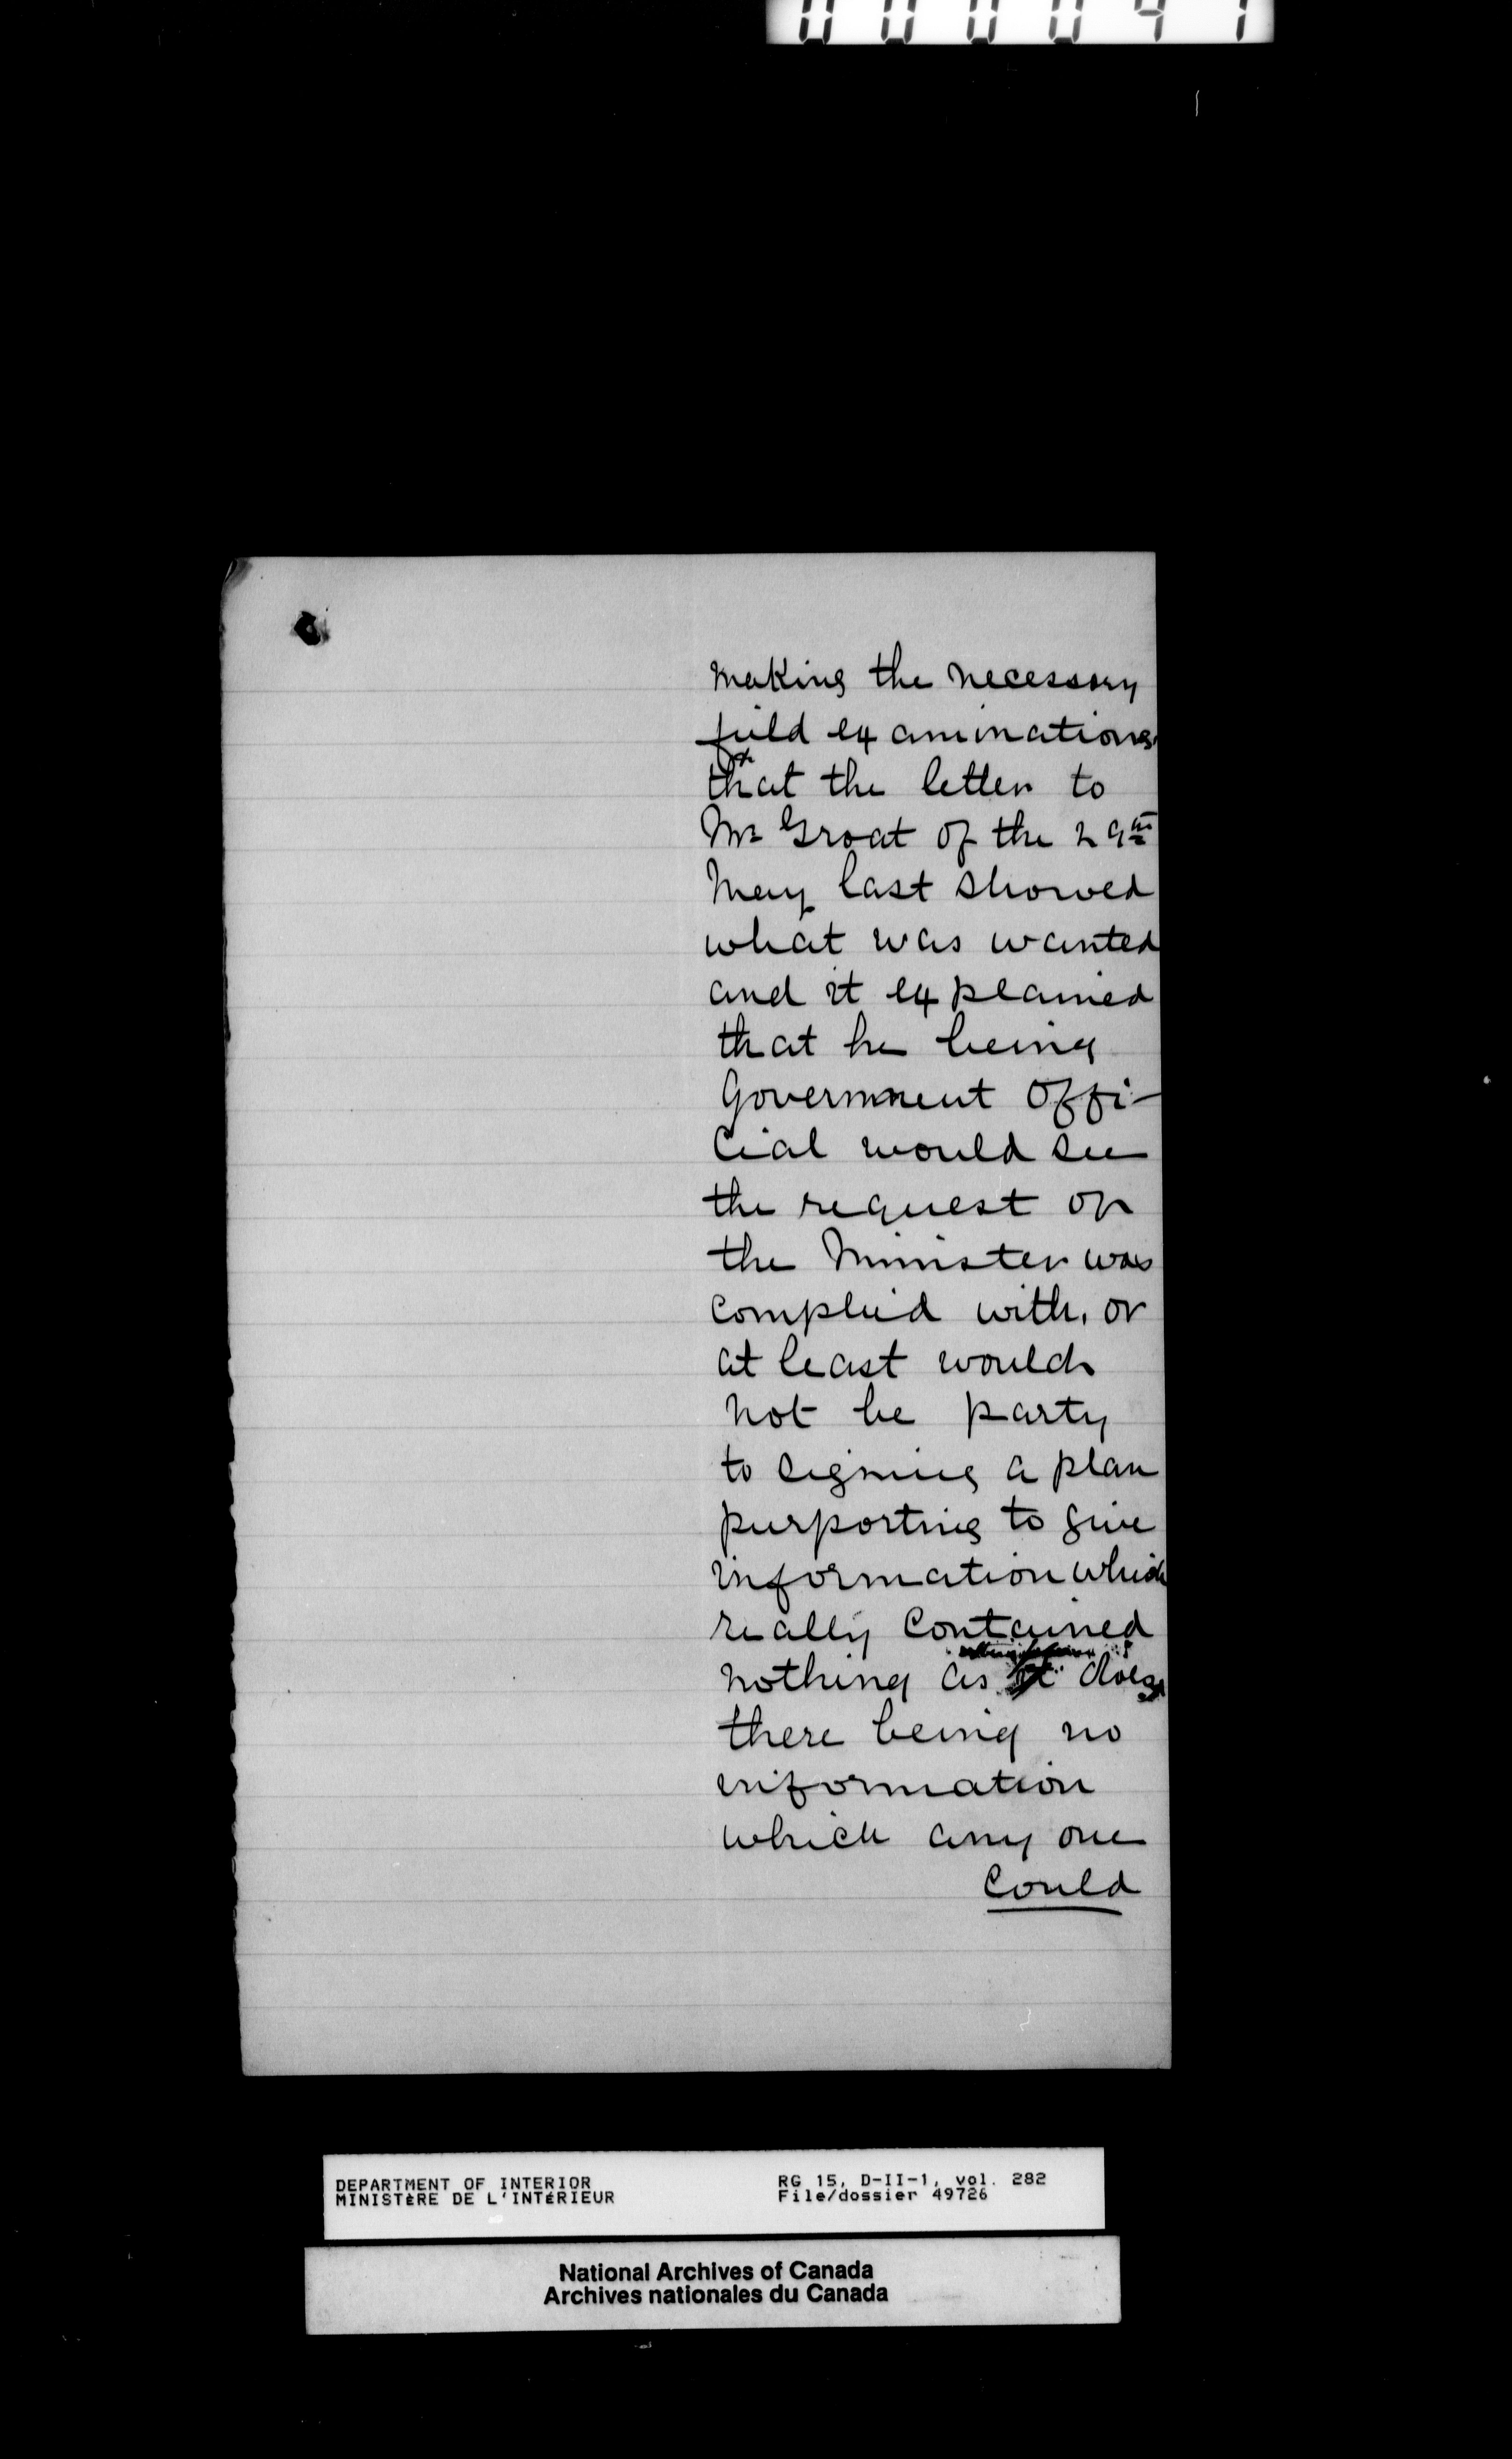 000041
making the necessary
field examinations.
that the letter to
Mr Groat of the 29th
May last showed
what was wanted
and it explained
that he being
Government Offi-
cial would see
the request of
the Minister was
complied with, or
at least would
not be party
to signing a plan
purporting to give
information which
really contained
nothing as it does
there being no
information
which any one
could
DEPARTMENT OF INTERIOR
MINISTÈRE DE L'INTÉRIEUR
RG 15, D-II-1, vol. 282
File/dossier 49726
National Archives of Canada
Archives nationales du Canada